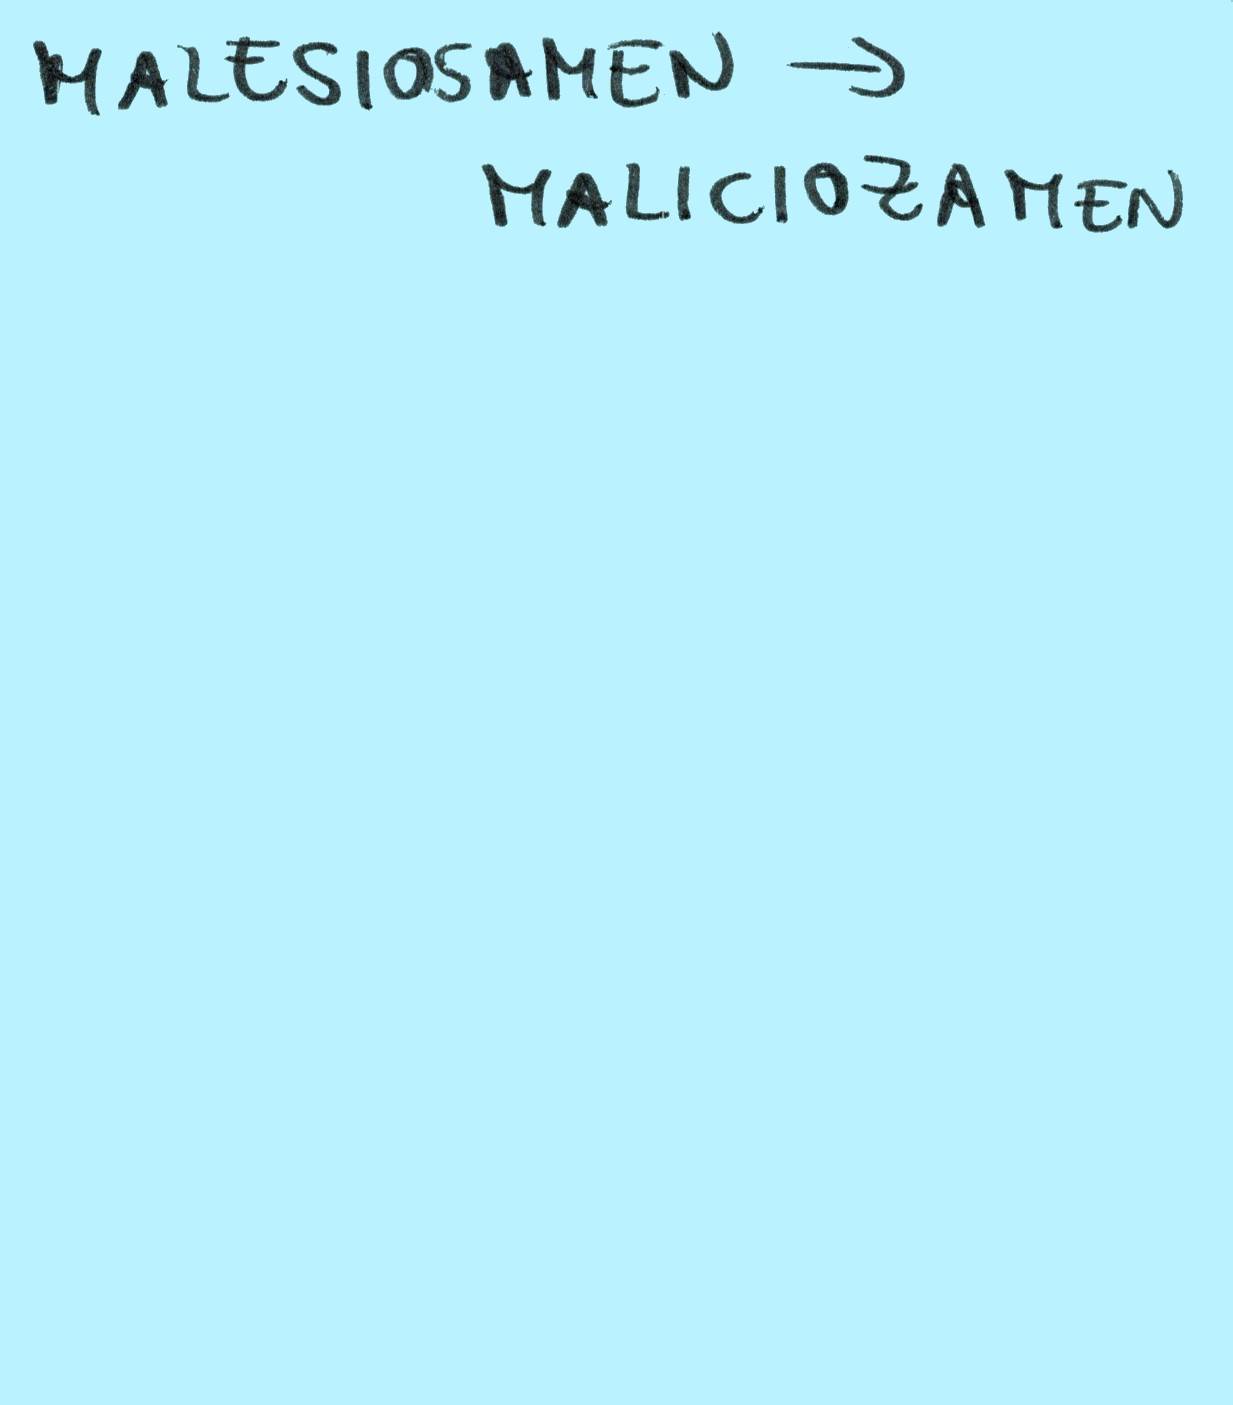 MALESIOSAMEN →
MALICIOZAMEN